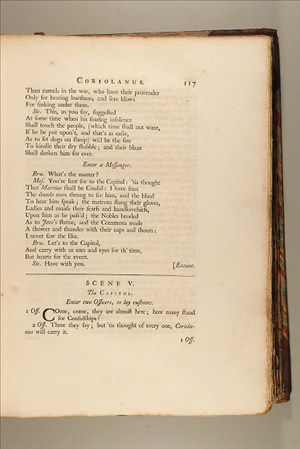 CORIOLANUS. 117
Than camels in the war, who have their provender
Only for bearing burthens, and sore blows
For sinking under them.
Sic. This, as you say, suggested
At some time when his soaring insolence
Shall touch the people, (which time shall not want,
If he be put upon't, and that's as easie,
As to set dogs on sheep) will be the fire
To kindle their dry stubble; and their blaze
Shall darken him for ever.
Enter a Messenger.
Bru. What's the matter?
Mes. You're sent for to the Capitol: 'tis thought
That Martius shall be Consul: I have seen
The dumb men throng to see him, and the blind
To hear him speak; the matrons flung their gloves,
Ladies and maids their scarfs and handkerchiefs,
Upon him as he pass'd; the Nobles bended
As to Jove's statue, and the Commons made
A shower and thunder with their caps and shouts:
I never saw the like.
Bru. Let's to the Capitol,
And carry with us ears and eyes for th' time,
But hearts for the event.
Sic. Have with you. [Exeunt.
SCENE V.
The CAPITOL.
Enter two Officers, to lay cushions.
1 Off. COme, come, they are almost here; how many stand
for Consulships?
2 Off. Three they say; but 'tis thought of every one, Coriola-
nus will carry it.
1 Off.